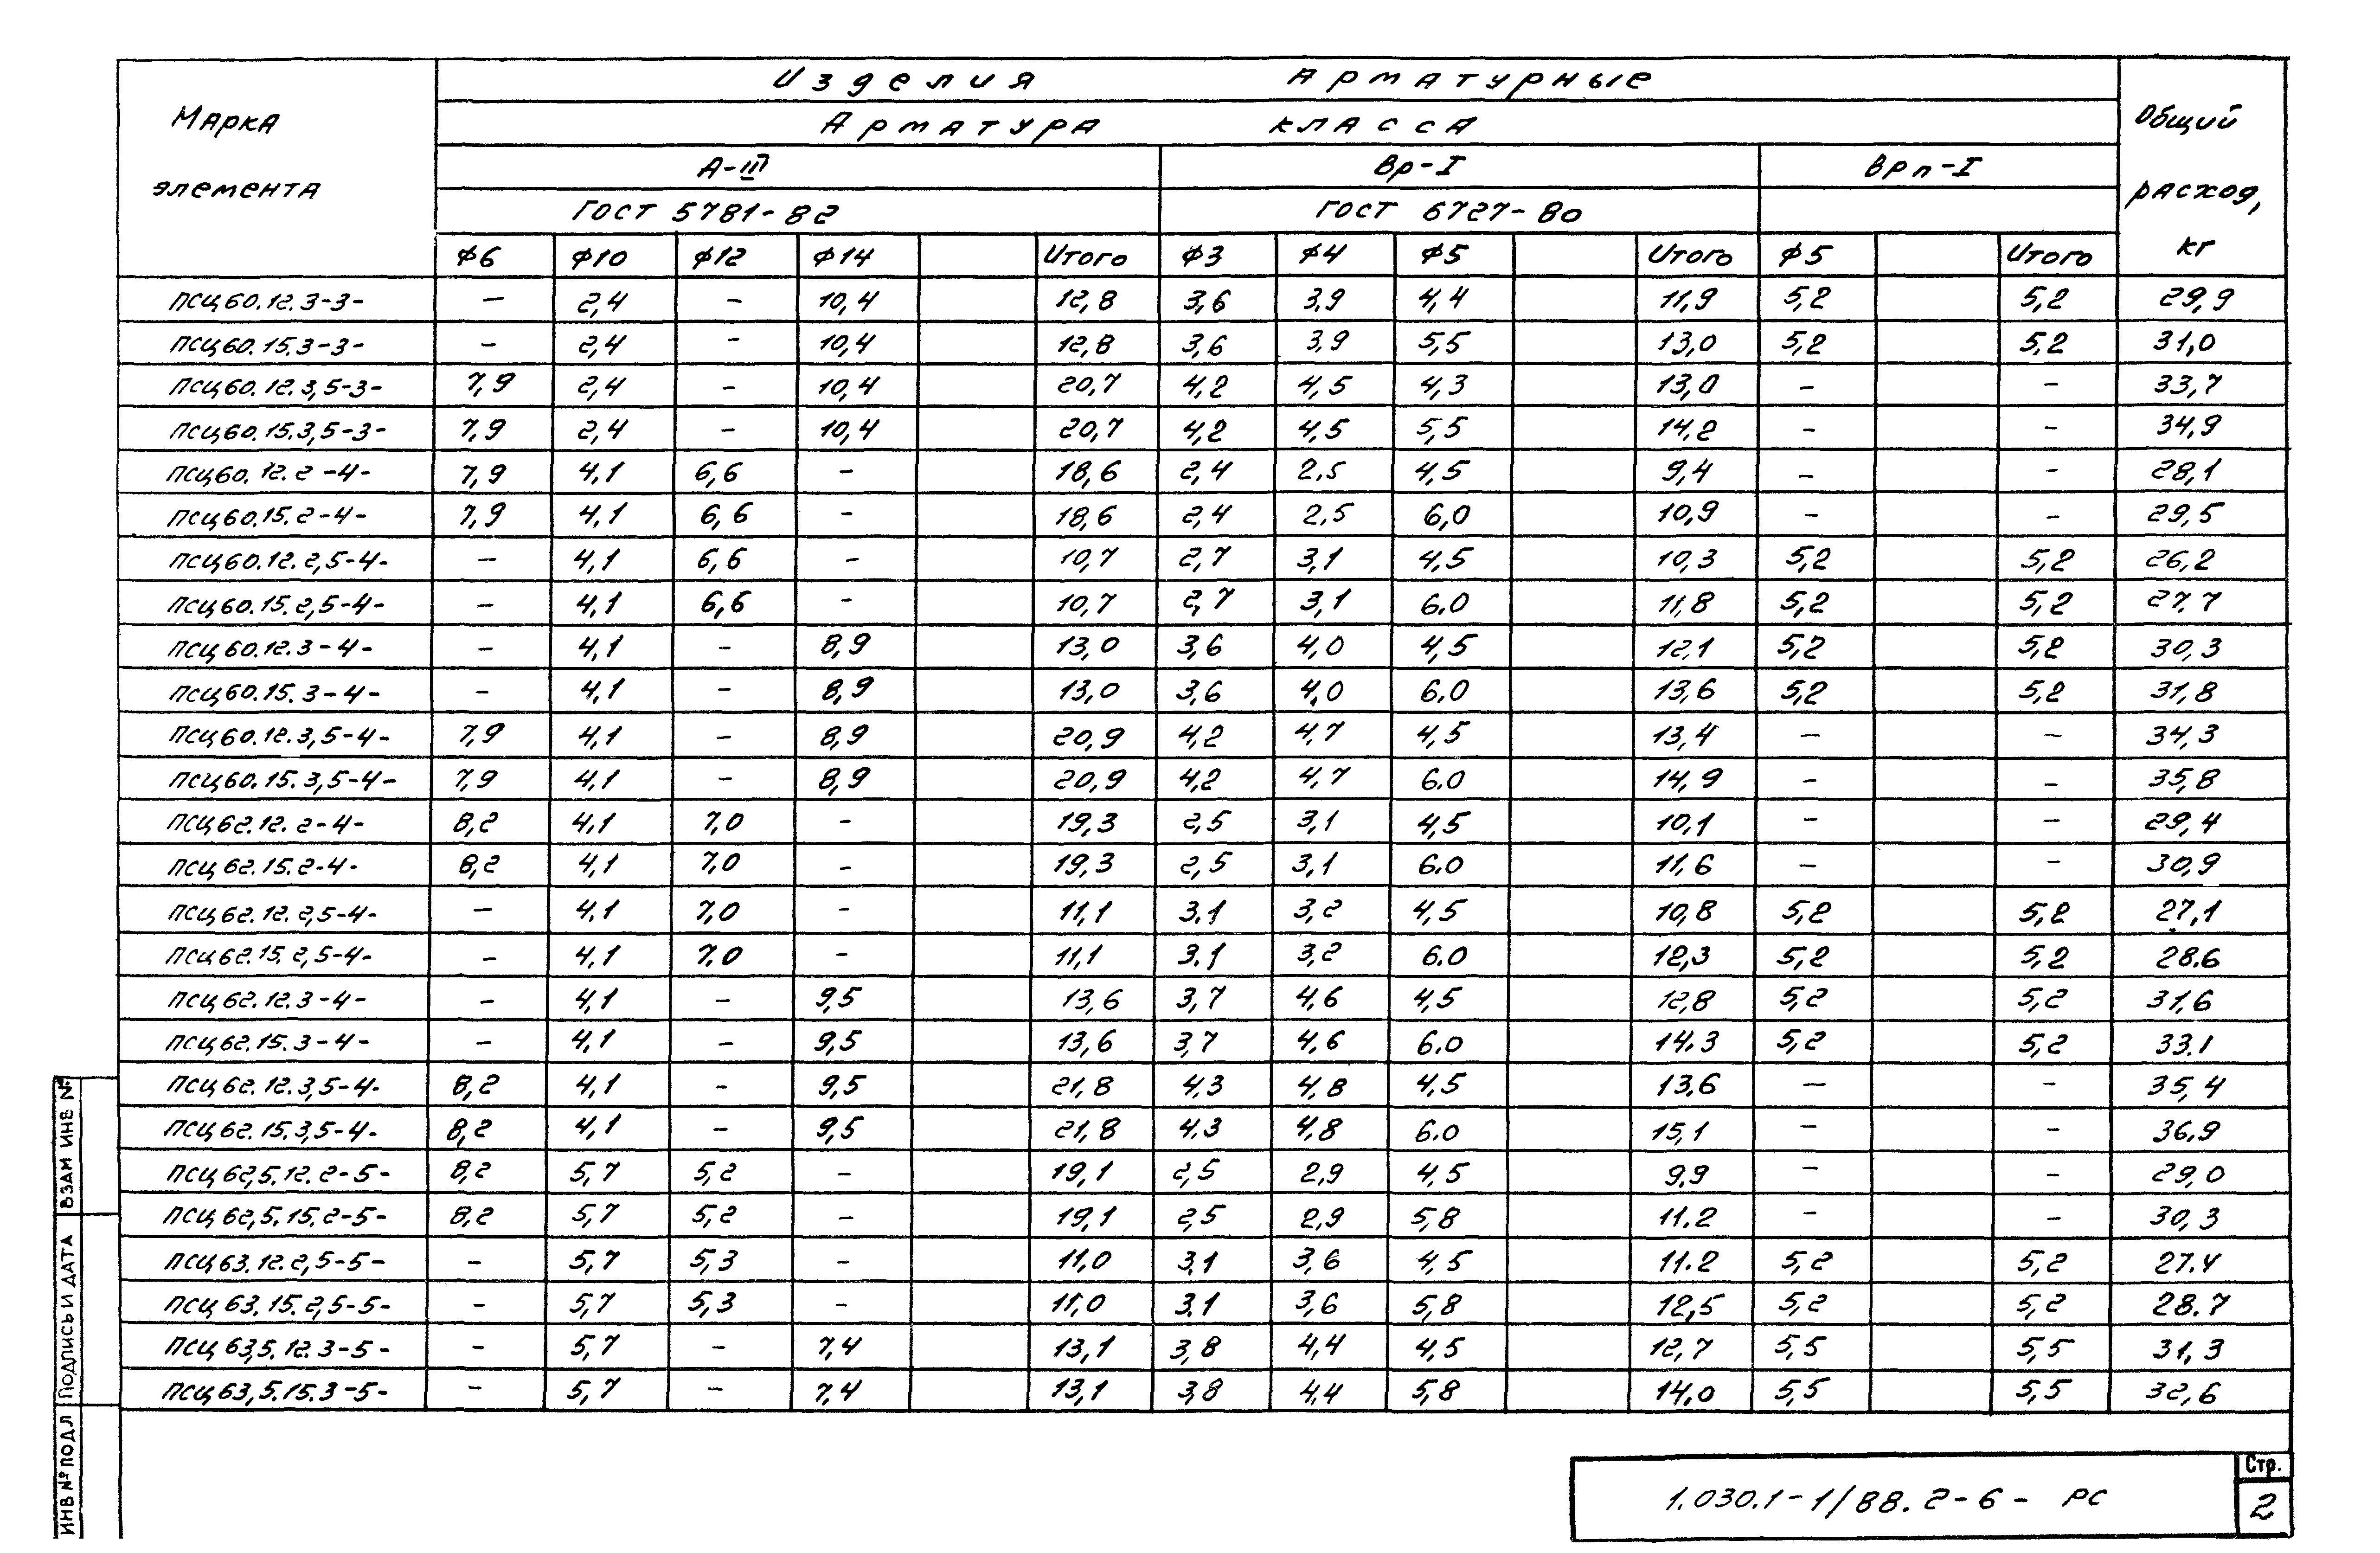 Марка элемента
Изделия Арматурные
Общий расход, кг
Арматура класса
А-III Вр-I Врп-I
ГОСТ 5781-82 ГОСТ 6727-80
ф6 ф10 ф12 ф14 Итого ф3 ф4 ф5 Итого ф5 Итого
ПСЦ60.12.3-3- – 2,4 – 10,4 12,8 3,6 3,9 4,4 11,9 5,2 5,2 29,9
ПСЦ60.15.3-3- – 2,4 – 10,4 12,8 3,6 3,9 5,5 13,0 5,2 5,2 31,0
ПСЦ60.12.3,5-3- 7,9 2,4 – 10,4 20,7 4,2 4,5 4,3 13,0 – – 33,7
ПСЦ60.15.3,5-3- 7,9 2,4 – 10,4 20,7 4,2 4,5 5,5 14,2 – – 34,9
ПСЦ60.12.2-4- 7,9 4,1 6,6 – 18,6 2,4 2,5 4,5 9,4 – – 28,1
ПСЦ60.15.2-4- 7,9 4,1 6,6 – 18,6 2,4 2,5 6,0 10,9 – – 29,5
ПСЦ60.12.2,5-4- – 4,1 6,6 – 10,7 2,7 3,1 4,5 10,3 5,2 5,2 26,2
ПСЦ60.15.2,5-4- – 4,1 6,6 – 10,7 2,7 3,1 6.0 11,8 5,2 5,2 27.7
ПСЦ60.12.3-4- – 4,1 – 8,9 13,0 3,6 4,0 4,5 12,1 5,2 5,2 30,3
ПСЦ60.15.3-4- – 4,1 – 8,9 13,0 3,6 4,0 6.0 13,6 5,2 5,2 31,8
ПСЦ60.12.3,5-4- 7,9 4,1 – 8,9 20,9 4,2 4,7 4,5 13,4 – – 34,3
ПСЦ60.15.3,5-4- 7,9 4,1 – 8,9 20,9 4,2 4,7 6.0 14,9 – – 35,8
ПСЦ62.12.2-4- 8,2 4,1 7,0 – 19,3 2,5 3,1 4,5 10,1 – – 29,4
ПСЦ62.15.2-4- 8,2 4,1 7,0 – 19,3 2,5 3,1 6.0 11,6 – – 30,9
ПСЦ62.12.2,5-4- – 4,1 7,0 – 11,1 3.1 3,2 4,5 10,8 5,2 5,2 27,1
ПСЦ62.15.2,5-4- – 4,1 7.0 – 11,1 3.1 3,2 6.0 12,3 5,2 5,2 28.6
ПСЦ62.12.3-4- – 4,1 – 9,5 13,6 3,7 4,6 4,5 12,8 5,2 5,2 31,6
ПСЦ62.15.3-4- – 4,1 – 9,5 13,6 3,7 4,6 6.0 14.3 5,2 5,2 33.1
ПСЦ62.12.3,5-4- 8,2 4,1 – 9,5 21,8 4,3 4,8 4,5 13.6 – – 35,4
ПСЦ62.15.3,5-4- 8,2 4,1 – 9,5 21,8 4.3 4,8 6.0 15,1 – – 36.9
ПСЦ62,5.12.2-5- 8,2 5,7 5,2 – 19,1 2,5 2,9 4,5 9.9 – – 29,0
ПСЦ62,5.15.2-5- 8,2 5,7 5,2 – 19,1 2,5 2,9 5,8 11.2 – – 30,3
ПСЦ63.12.2,5-5- – 5,7 5,3 – 11,0 3.1 3,6 4,5 11.2 5,2 5,2 27.4
ПСЦ63.15.2,5-5- – 5,7 5,3 – 11,0 3.1 3,6 5,8 12,5 5,2 5,2 28.7
ПСЦ63,5.12.3-5- – 5,7 – 7,4 13,1 3,8 4,4 4,5 12,7 5,5 5,5 31,3
ПСЦ63,5.15.3-5- – 5,7 – 7,4 13,1 3,8 4,4 5,8 14,0 5,5 5,5 32,6
ВЗАМ ИНВ №
ПОДПИСЬ И ДАТА
ИНВ № ПОДЛ
1.030.1-1/88.2-6- РС
Стр.
2